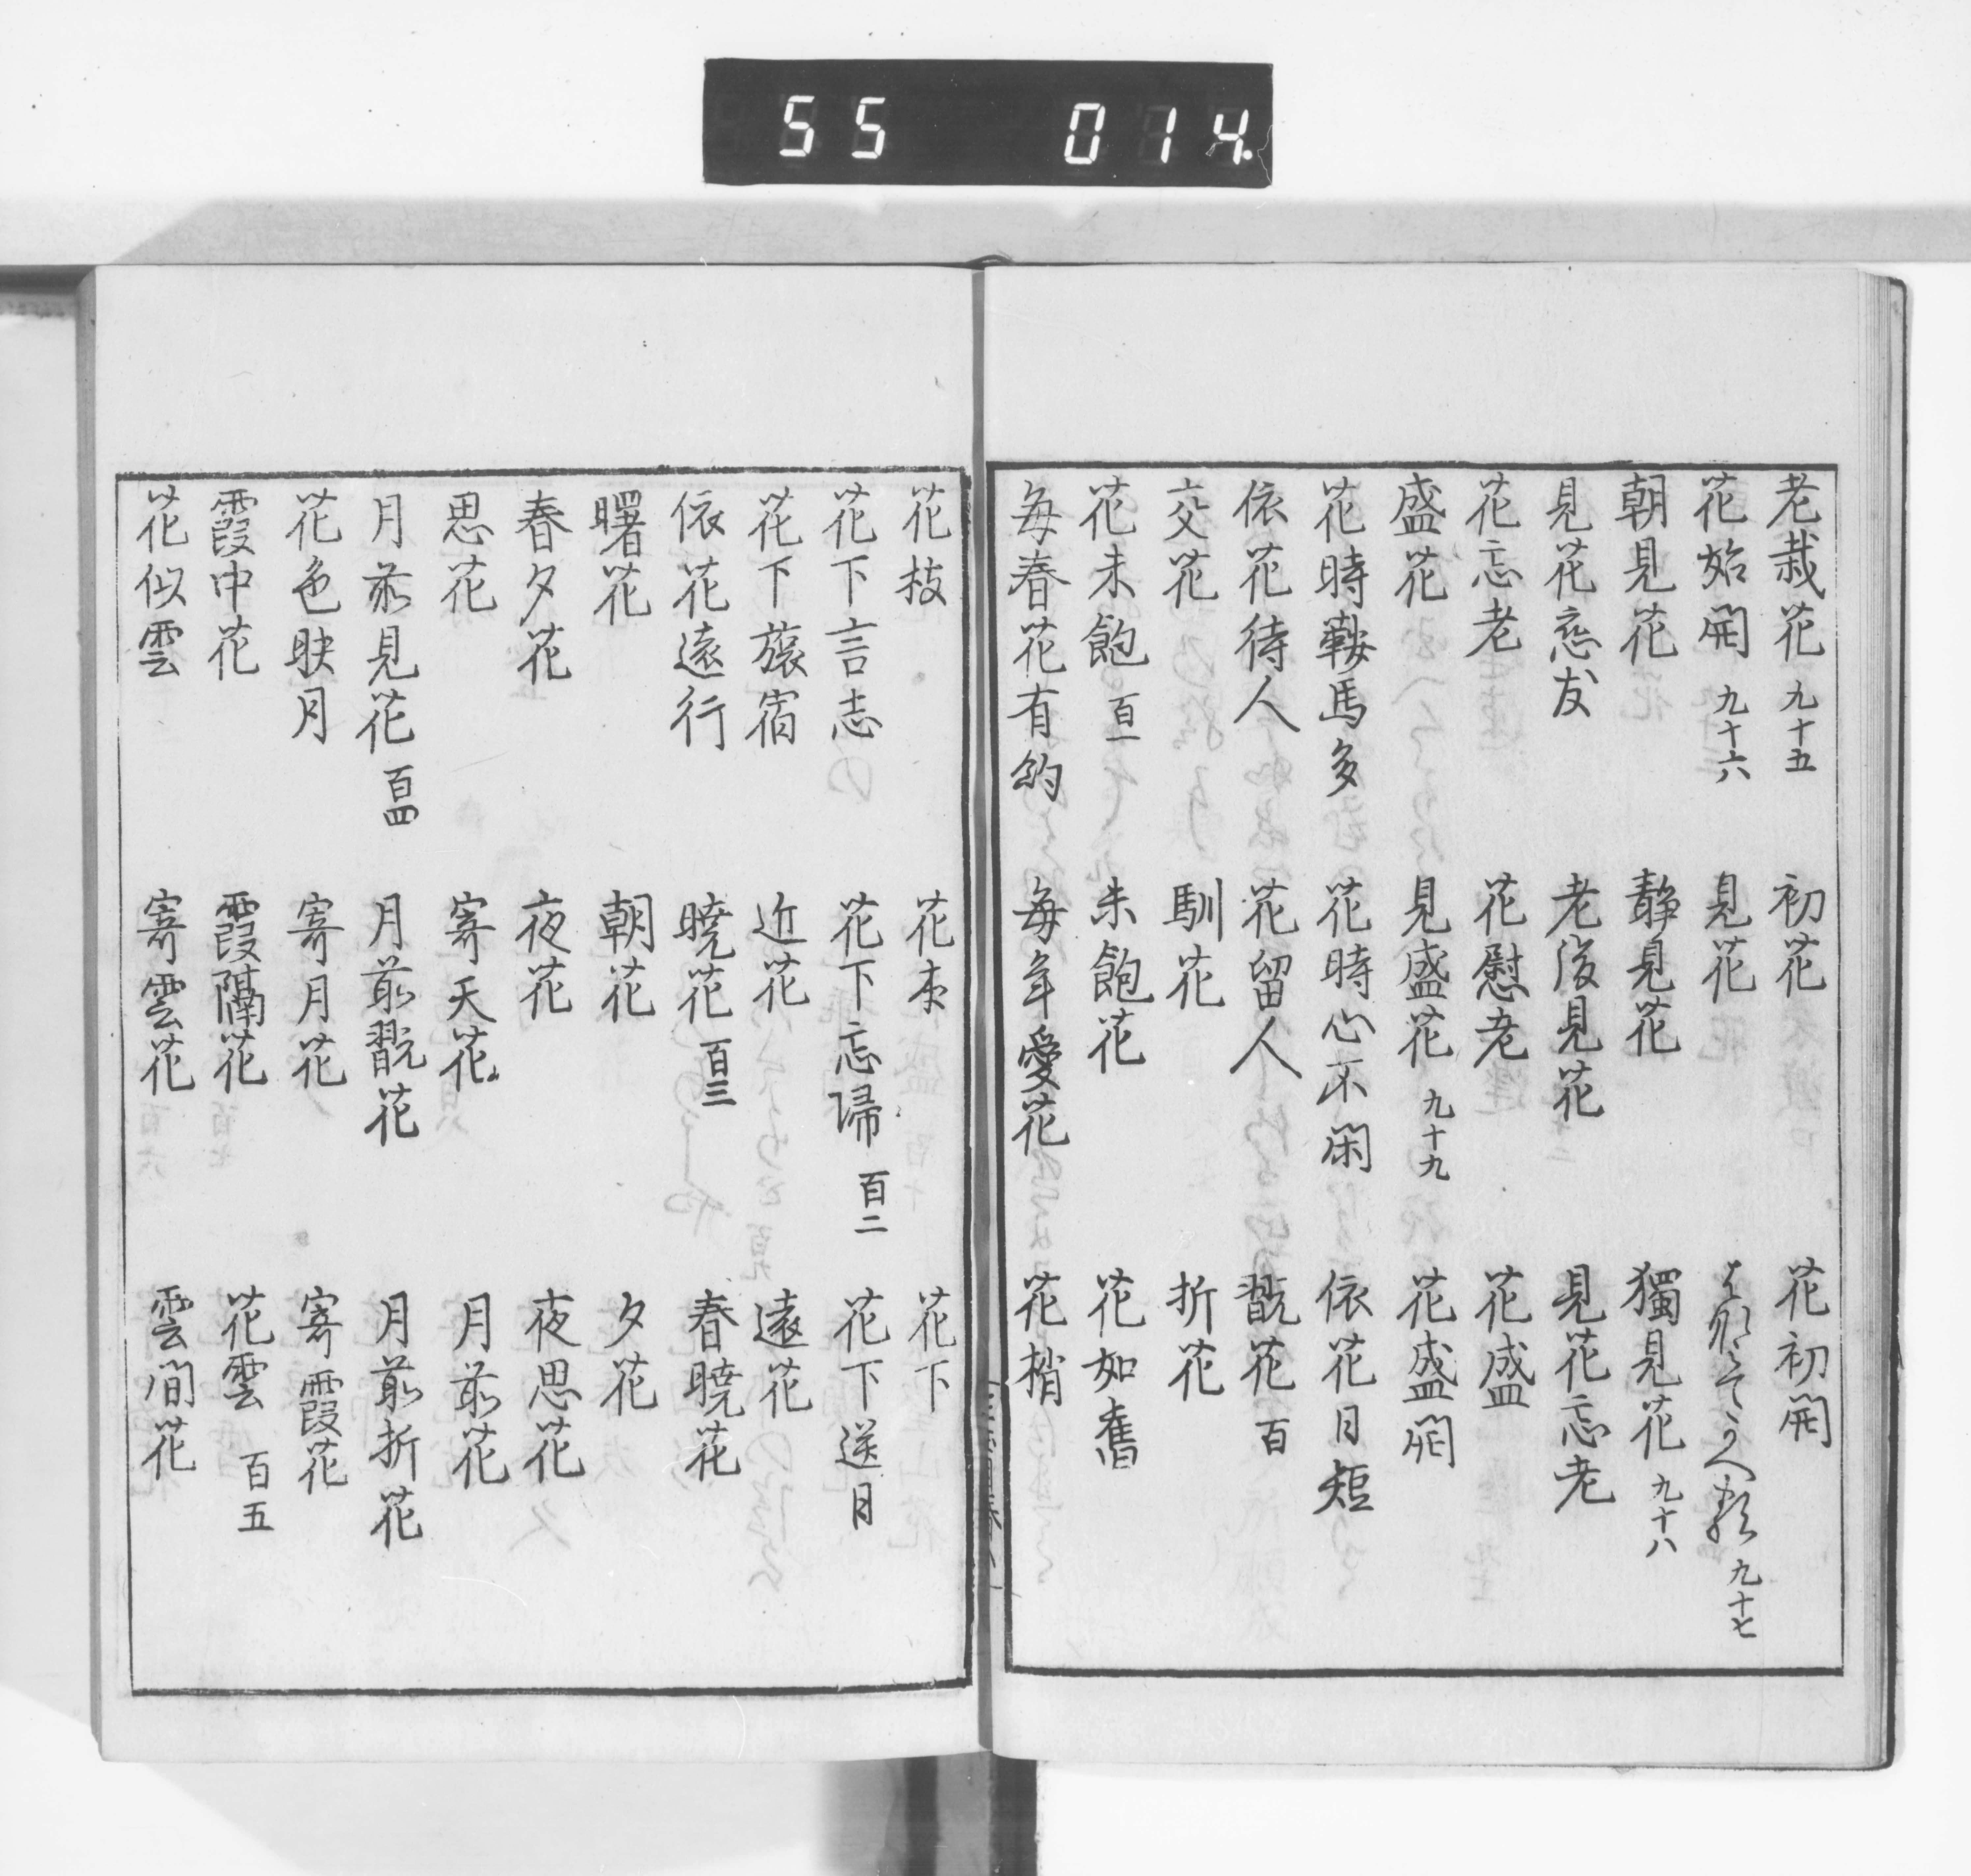 55 014
老栽花 九十五 初花 花初開
花始開 九十六 見花 九十七
朝見花 静見花 獨見花 九十八
見花恋友 老後見花 見花忘老
花忘老 花慰老 花盛
盛花 見盛花 九十九 花盛開
花時鞍馬多 花時心不閑 依花日短
依花待人 花留人 翫花 百
交花 馴花 折花
花未飽 百一 未飽花 花如舊
毎春花有約 毎年愛花 花梢
花枝 花本 花下
花下言志 花下忘帰 百二 花下送日
花下旅宿 近花 遠花
依花遠行 暁花 百三 春暁花
曙花 朝花 夕花
春夕花 夜花 夜思花
思花 寄天花 月前花
月前見花 百四 月前翫花 月前折花
花色映月 寄月花 寄霞花
霞中花 霞隔花 花雲 百五
花似雲 寄雲花 雲間花